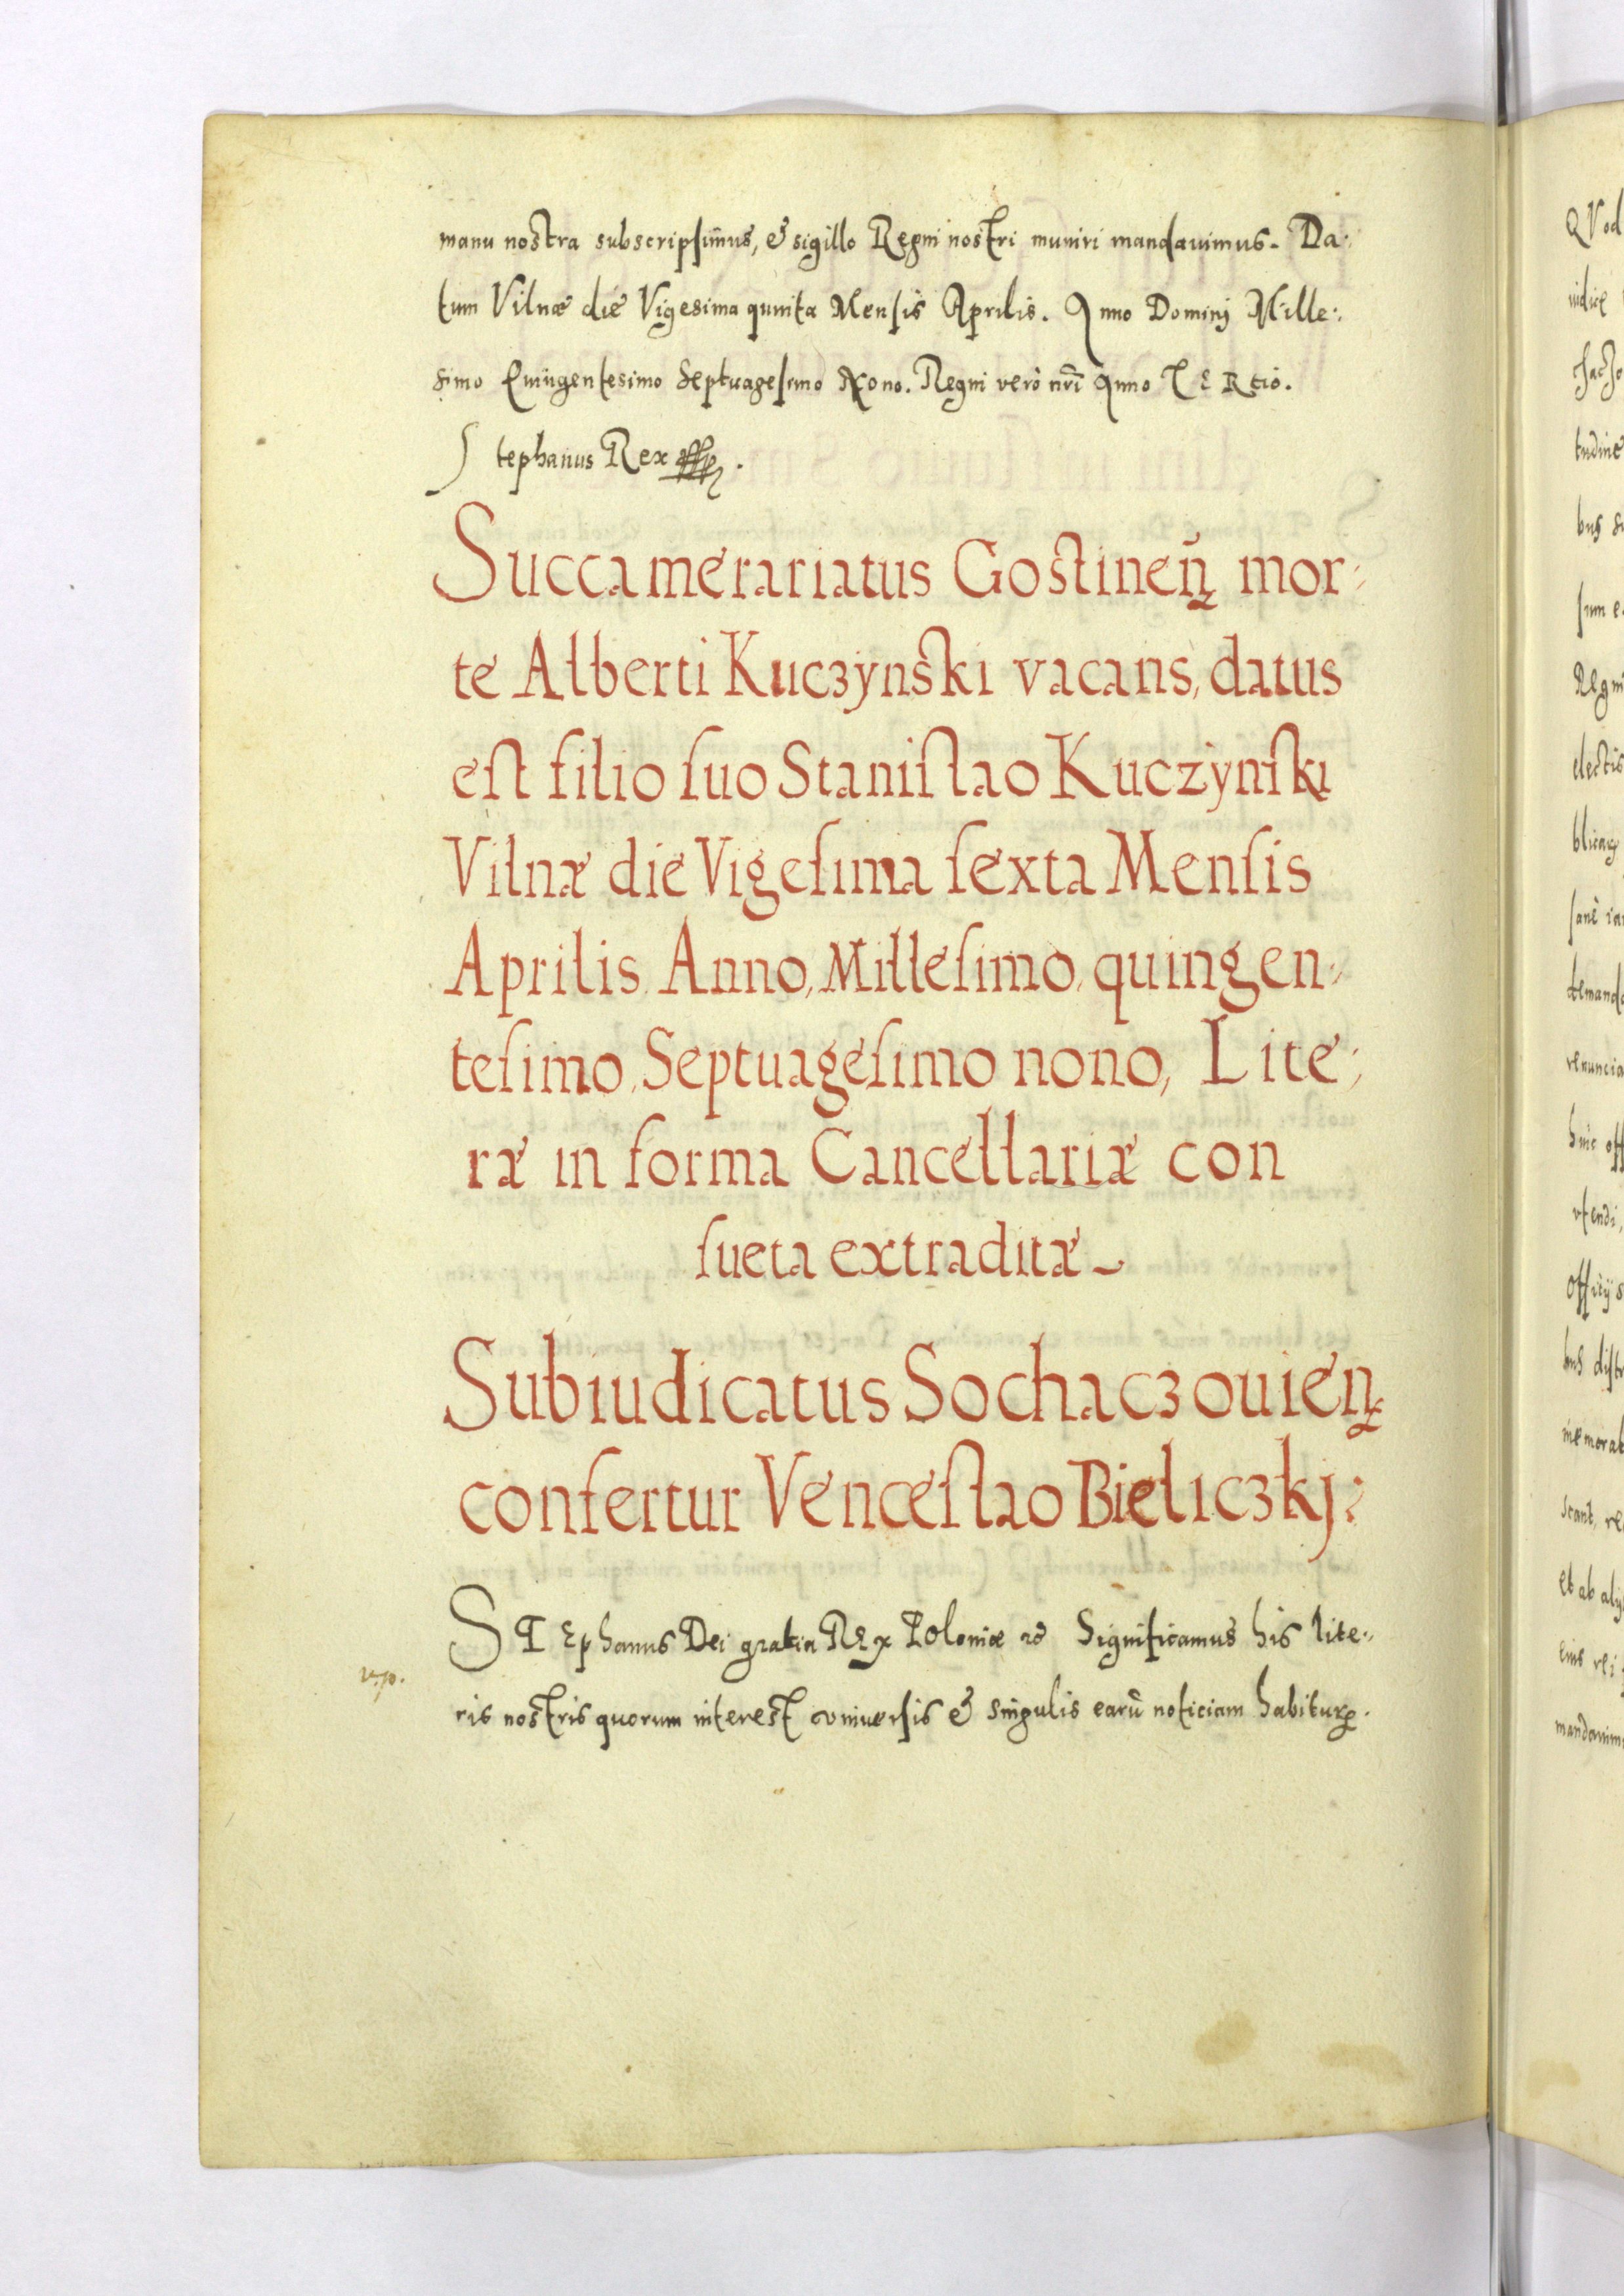 manu nostra subscripsimus, & sigillo Regni nostri muniri mandauimus. Da:
tum Vilnæ die Vigesima quinta Mensis Aprilis. Anno Dominj Mille:
simo Quingentesimo Septuagesimo Nono. Regni verò nrī Anno TERtio.
Stephanus Rex
Succamerariatus Gostineñ mor:
te Alberti Kuczynski vacans, datus
est filio suo Stanislao Kuczynski
Vilnæ die Vigesima sexta Mensis
Aprilis Anno, Millesimo, quingen:
tesimo, Septuagesimo nono, Lite:
ræ in forma Cancellariæ con
sueta extraditæ
Subiudicatus Sochaczouien
confertur Venceslao Bieliczkj:
STEphanus Dei gratia REx Poloniæ &c Significamus his lite:
ris nostris quorum interest vniuersis & singulis earū noticiam habituꝝ.
QVod
iudice
tudine
bus
sum
Regni
electis
demand
renuncia
huic off
vtendi,
officÿs
bus distr
memorat
scant, re
et ab alÿ
eius rei
mandauim